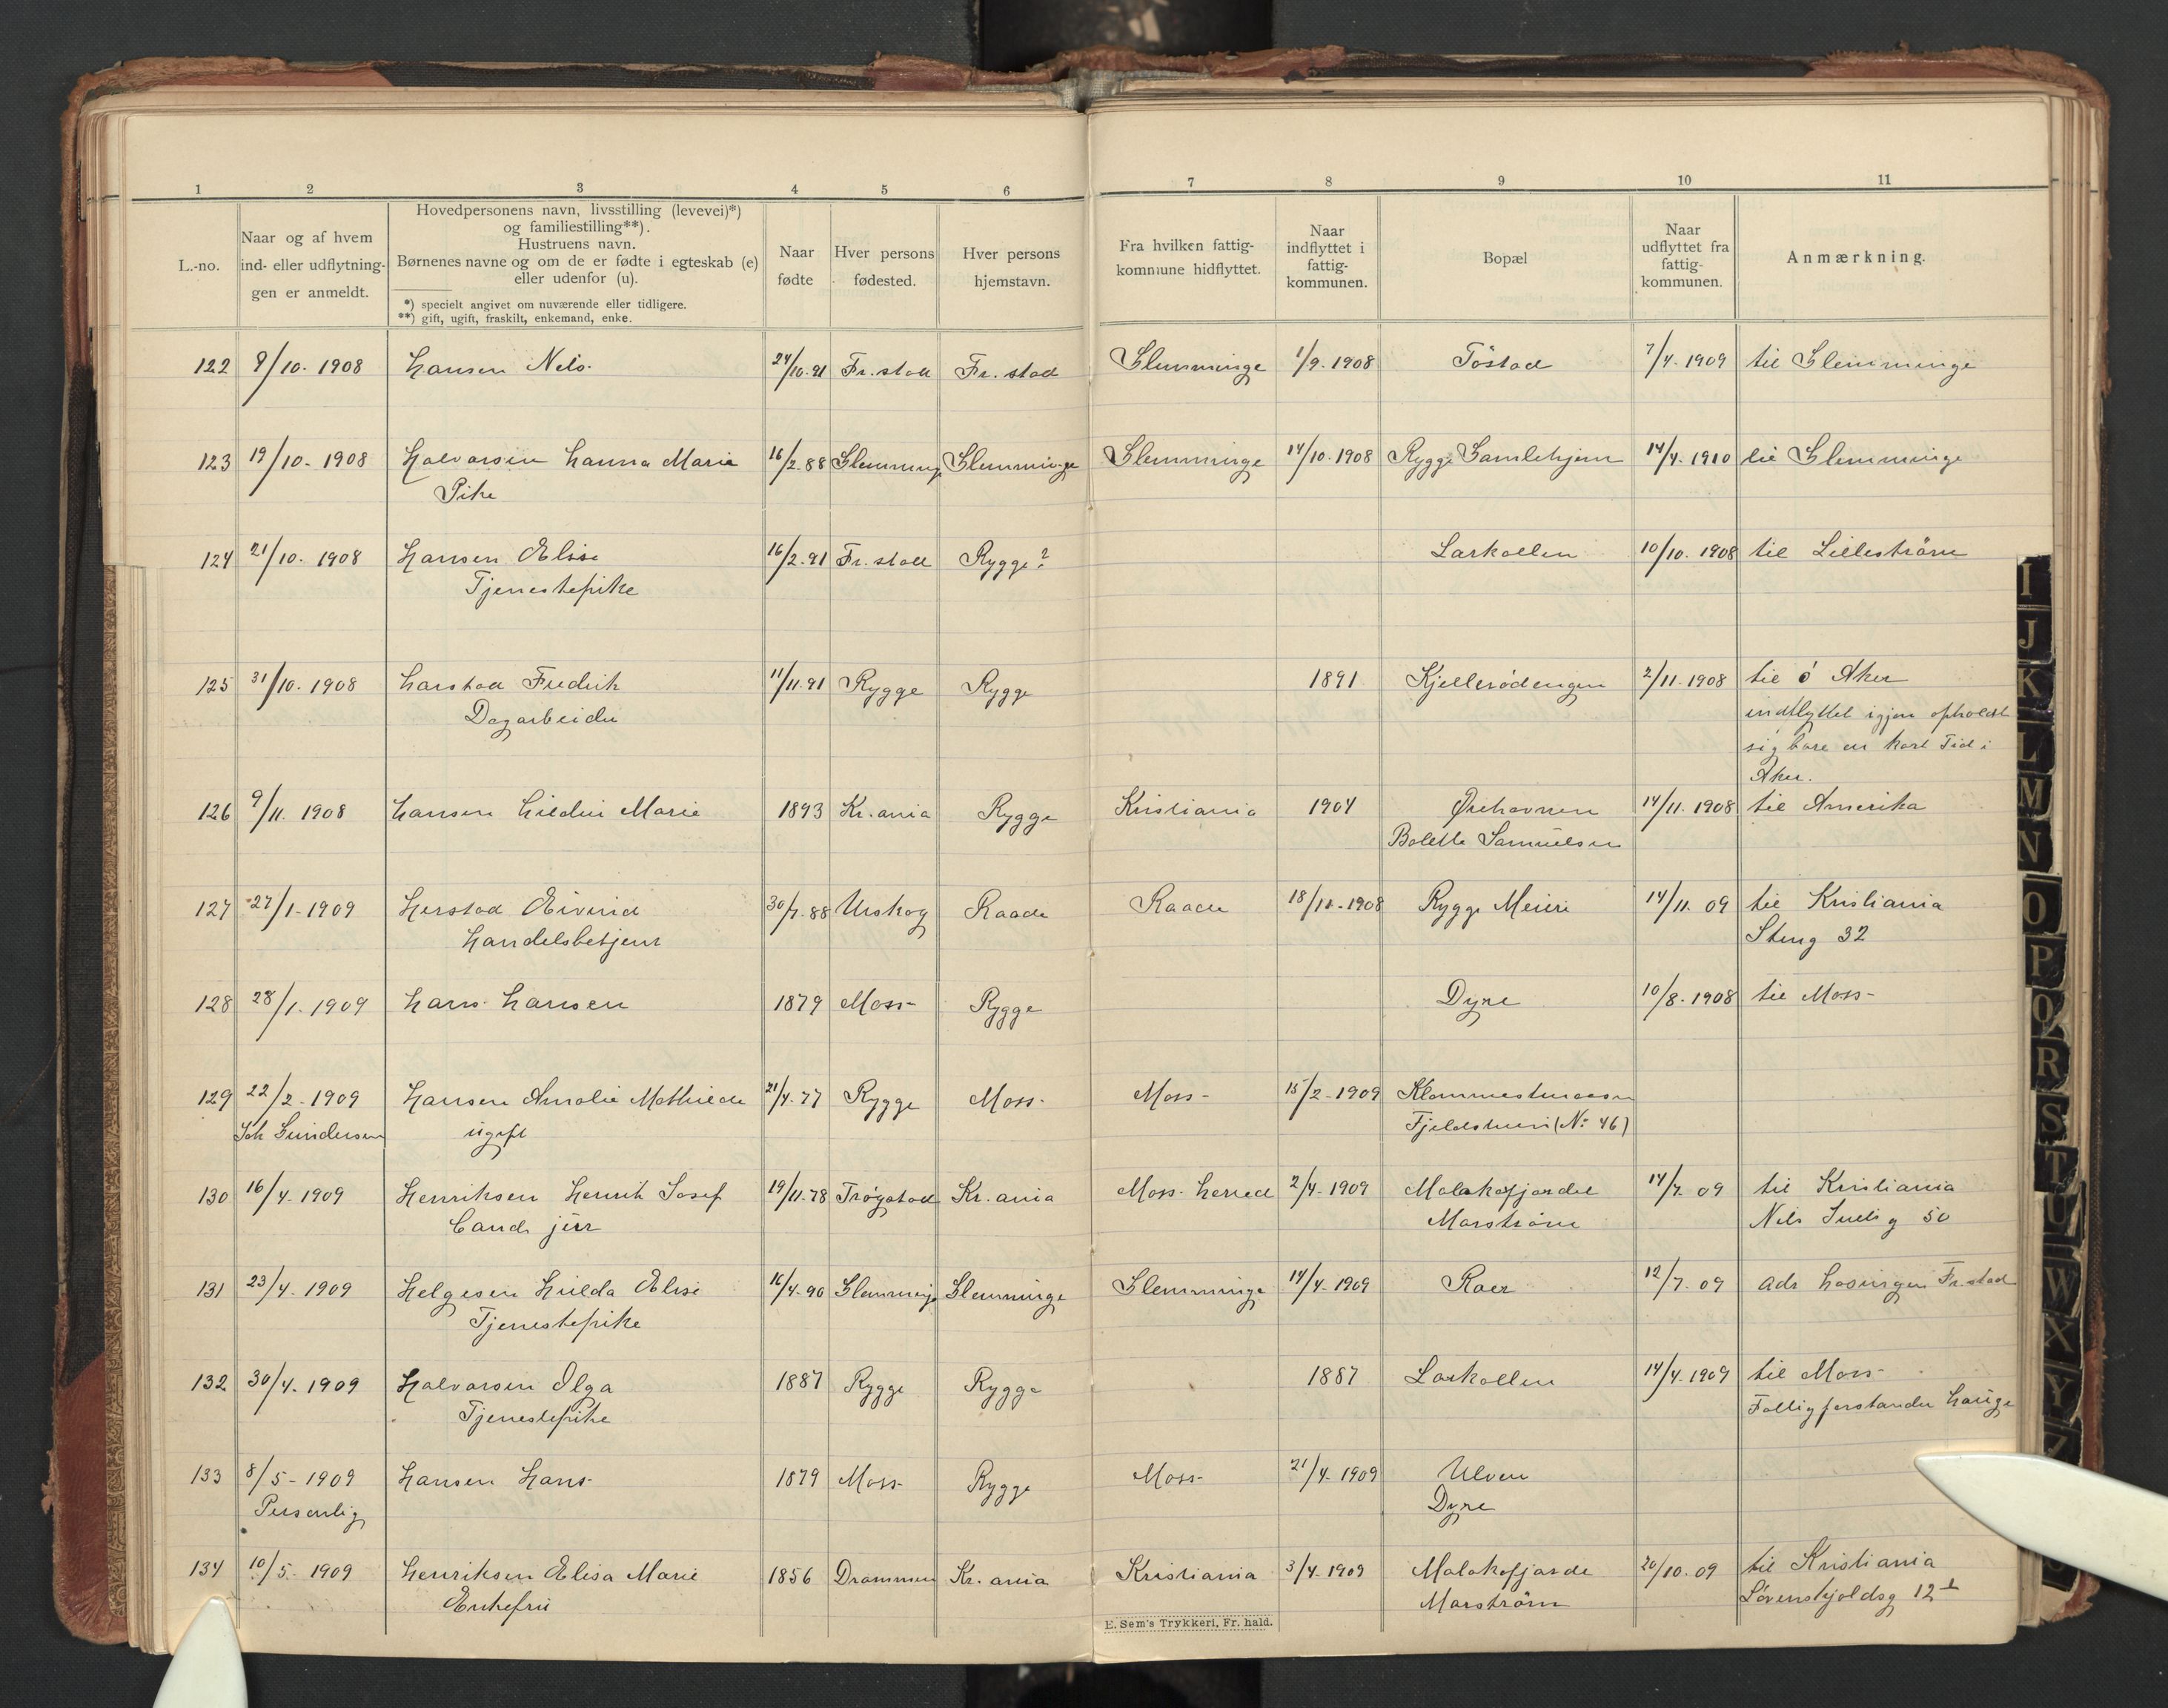 1 2 3 4 5 6 7 8 9 10 11
L.-no.
Naar og af hvem
ind- eller udflytnin-
gen er anmeldt.
Hovedpersonens navn, livsstilling (levevei)*)
og familiestilling**).
Hustruens navn.
Børnenes navne og om de er fødte i egteskab (e)
eller udenfor (u).
*) specielt angivet om nuværende eller tidligere.
**) gift, ugift, fraskilt, enkemand, enke.
Naar
fødte
Hver persons
fødested.
Hver persons
hjemstavn.
Fra hvilken fattig-
kommune hidflyttet.
Naar
indflyttet i
fattig-
kommunen.
Bopæl
Naar
udflyttet fra
fattig-
kommunen.
Anmærkning.
122 9/10. 1908 Hansen Nels. 24/10.91 Fr.stad Fr.stad Glemminge 1/9. 1908 Töstad 7/4. 1909 til Glemminge
123 19/10. 1908 Halvorsen Hanna Marie 16/2.88 Glemminge Glemminge Glemminge 14/10.1908 Rygge Gamlehjem 14/4.1910 til Glemminge
Pike
124 21/10. 1908 Hansen Elise 16/2.91 Fr.stad Rygge? Larkollen 10/10.1908 til Lilleström
Tjenestepike
125 31/10.1908 Harstad Fredrik 11/11.91 Rygge Rygge 1891 Kjellerödengen 2/11.1908 til ö Aker
Dagarbeider indflyttet igjen opholdt
sig bare en kort Tid i
Aker.
126 9/11. 1908 Hansen Hildur Marie 1893 Kr.ania Rygge Kristiania 1904 Ørehavnen 14/11.1908 til Amerika
Bolette Samuelsen
127 27/1-1909 Herstad Eivind 30/7.88 Urskog Raade Raade 18/11-1908 Rygge Meieri 14/11.09 til Kristiania
Handelsbetjent Steng 32
128 28/1.1909 Hans Hansen 1879 Moss- Rygge Dyre 10/8.1908 til Moss-
129 22/2-1909 Hansen Amalie Mathilde 21/4.77 Rygge Moss- Moss- 15/2-1909
Joh Gundersen ugift (No 46)
130 16/4.1909 Henriksen Henrik Josef 19/11.78 Trøgstad Kr.ania Moss-herred 2/4.1909 Malakofjordet 14/7.09 til Kristiania
Cand jur Marström Nils Juelsg 50
131 23/4.1909 Helgesen Hulda Elise 16/4.90 Glemminge Glemminge Glemminge 14/4.1909 Roer 12/7.09 adr Fr.stad
Tjenestepike
132 30/4.1909 Halvorsen Olga 1887 Rygge Rygge 1887 Larkollen 14/4.1909 til Moss-
Tjenestepike Fattigforstander Hauge
133 8/5-1909 Hansen Hans- 1879 Moss- Rygge Moss- 21/4.1909 Ulven
Personlig Dyre
134 10/5.1909 Henriksen Elisa Marie 1856 Drammen Kr.ania Kristiania 3/4.1909 Malakofjorde 20/10.09 til Kristiania
Enkefru Marström Lövenskjoldsg 12 I
E. Sem's Trykkeri, Fr. hald.
I
J
K
L
M
N
O
P
Q
R
S
T
U
W
X
Y